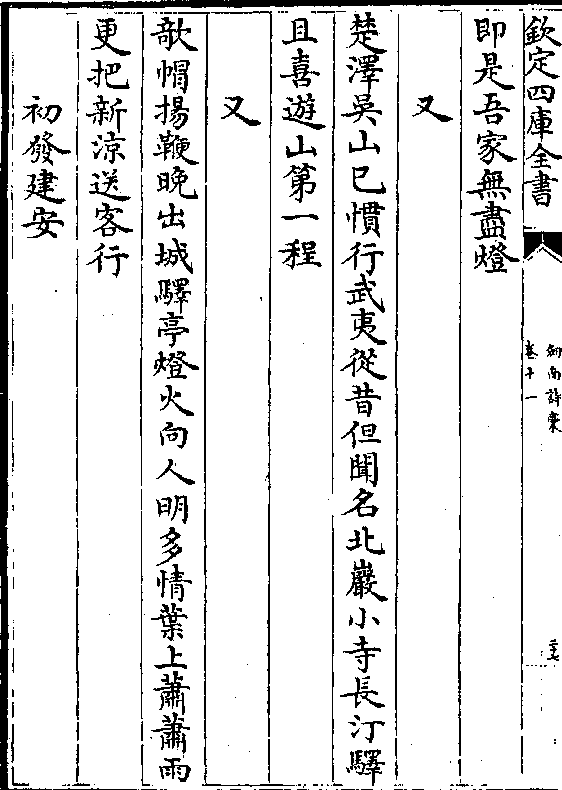 欽定四庫全書
劒南詩稾
卷十一
即是吾家無盡燈
又
楚澤吳山已慣行武夷從昔但聞名北巖小寺長汀驛
且喜遊山第一程
又
欹帽揚鞭晚出城驛亭燈火向人明多情葉上蕭蕭雨
更把新涼送客行
初發建安